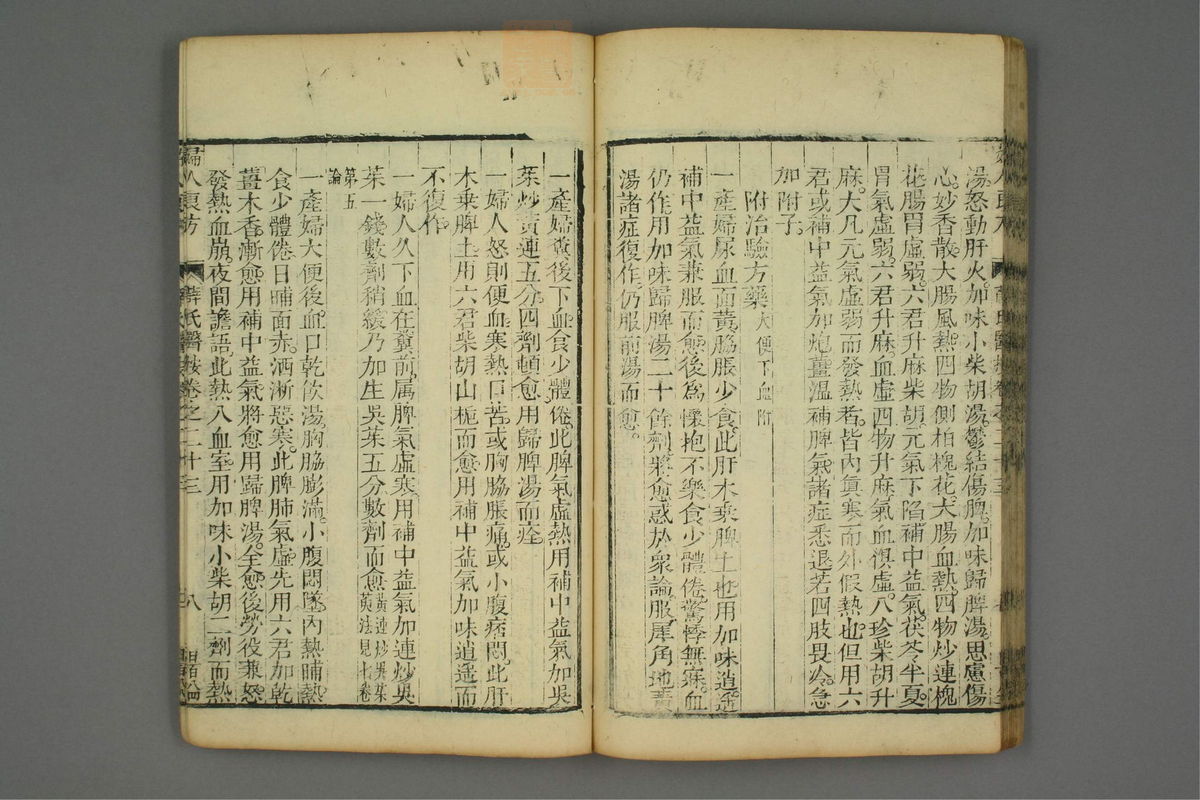 湯忿動肝火加味小柴胡湯鬱結傷脾加味歸脾湯思慮傷
心妙香散大腸風熱四物側柏槐花大腸血熱四物炒連槐
花腸胃虛弱六君升麻柴胡元氣下陷補中益氣茯苓半夏
胃氣虛弱六君升麻血虛四物升麻氣血俱虛八珍柴胡升
麻大凡元氣虛弱而發熱者皆內眞寒而外假熱也但用六
君或補中益氣加炮薑溫補脾氣諸症悉退若四肢畏冷急
加附子
附治驗方藥大便下血附
一產婦尿血面黃脇脹少食此肝木乘脾土也用加味逍遙
補中益氣兼服而愈後爲懷抱不樂食少體倦驚悸無寐血
仍作用加味歸脾湯二十餘劑將愈惑於衆論服犀角地黃
湯諸症復作仍服前湯而愈
一產婦糞後下血食少體倦此脾氣虛熱用補中益氣加吳
茱炒黃連五分四劑頓愈用歸脾湯而痊
一婦人怒則便血寒熱口苦或胸脇脹痛或小腹痞悶此肝
木乘脾土用六君柴胡山梔而愈用補中益氣加味逍遙而
不復作
一婦人久下血在糞前屬脾氣虛寒用補中益氣加連炒吳
茱一錢數劑稍緩乃加生吳茱五分數劑而愈黃連炒吳茱萸法見七卷
第五論
一產婦大便後血口乾飲湯胸脇膨滿小腹悶墜內熱晡熱
食少體倦日晡面赤洒淅惡寒此脾肺氣虛先用六君加乾
薑木香漸愈用補中益氣將愈用歸脾湯全愈後勞役兼怒
發熱血崩夜間譫語此熱入血室用加味小柴胡二劑而熱
婦人良方
薛氏醫按卷之二十三
八